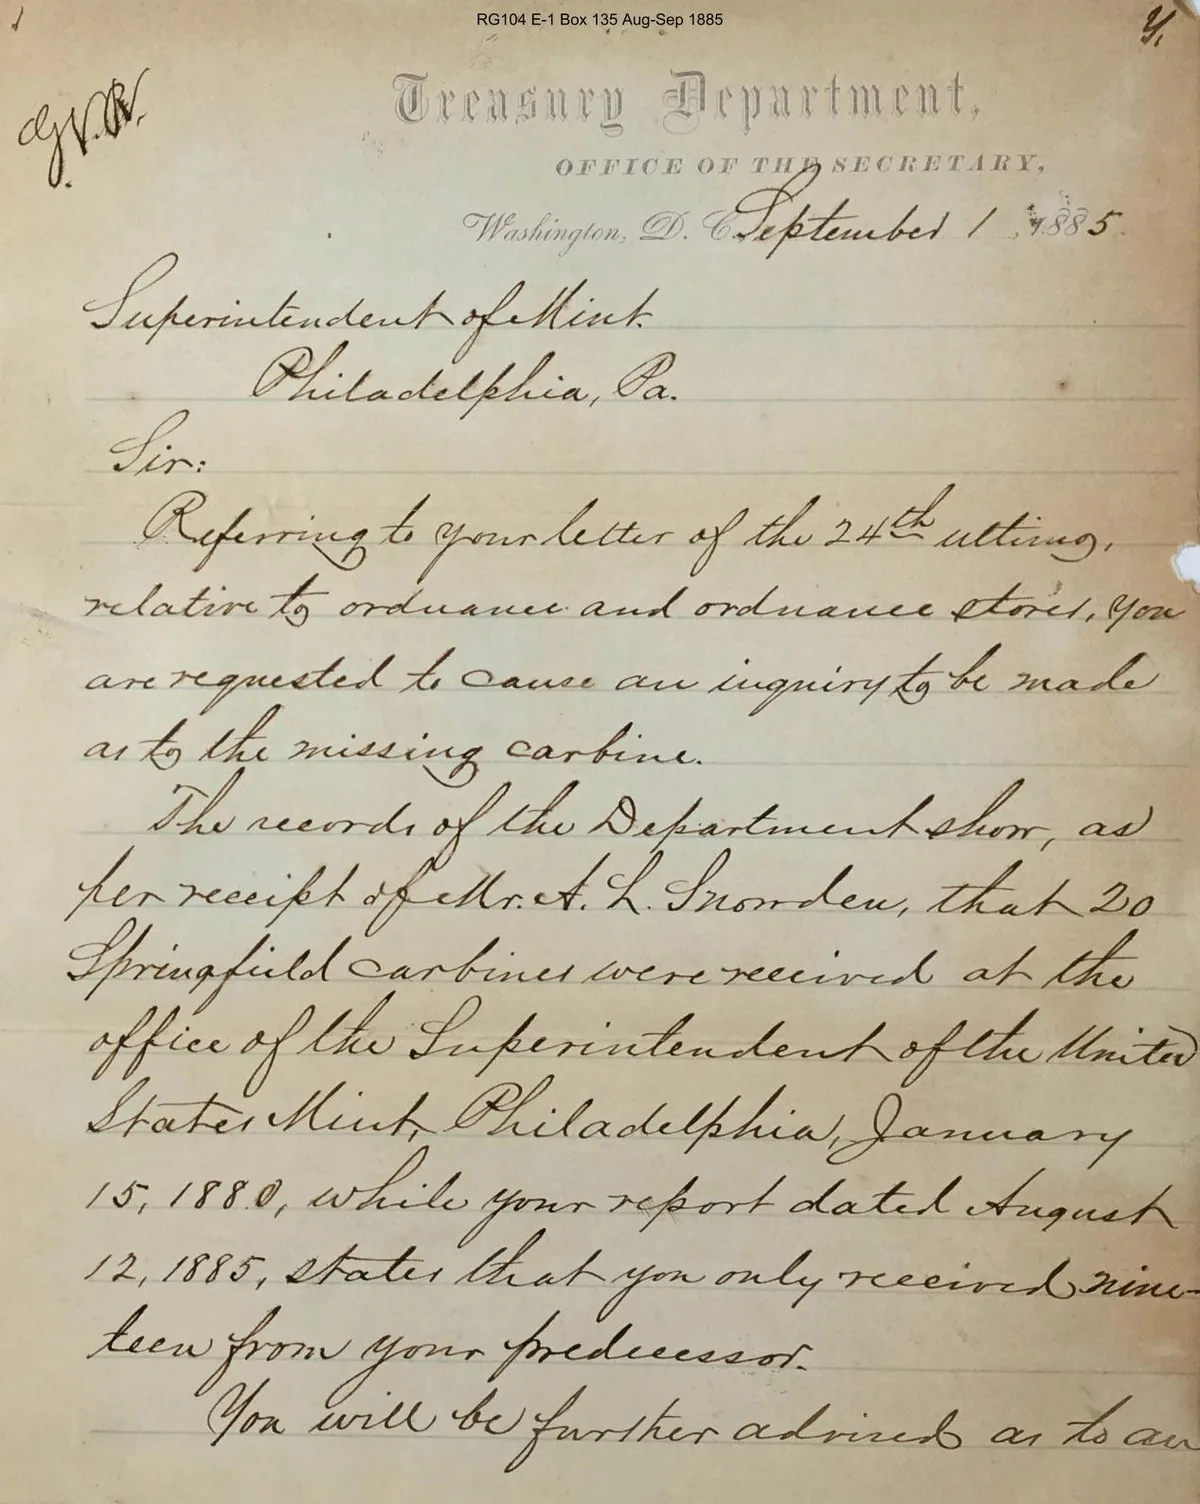 RG104 E-1 Box 135 Aug-Sep 1885
Y.
Treasury Department,
OFFICE OF THE SECRETARY,
Washington, D. C. September 1, 1885.
Superintendent of Mint.
Philadelphia, Pa.
Sir:
Referring to your letter of the 24th ultimo,
relative to ordnance and ordnance stores, you
are requested to cause an inquiry to be made
as to the missing carbine.
The records of the Department show, as
per receipt of Mr. A. L. Snowden, that 20
Springfield carbines were received at the
office of the Superintendent of the United
States Mint, Philadelphia, January
15, 1880, while your report dated August
12, 1885, states that you only received nine-
teen from your predecessor.
You will be further advised as to an